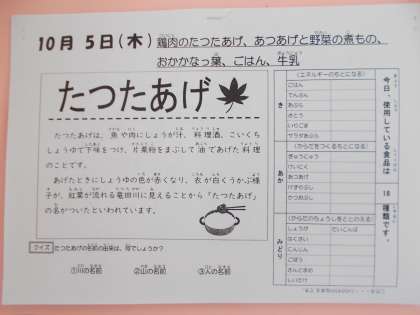 10月 5日(木)
鶏肉のたつたあげ、あつあげと野菜の煮もの、
おかかなっ葉、ごはん、牛乳
たつたあげ
たつたあげは、魚や肉にしょうが汁、料理酒、こいくち
しょうゆで下味をつけ、片栗粉をまぶして油であげた料理
のことです。
あげたときにしょうゆの色が赤くなり、衣が白くうかぶ様
子が、紅葉が流れる竜田川に見えることから「たつたあげ」
の名がついたといわれています。
クイズ
たつたあげの名前の由来は、何でしょうか?
①川の名前 ②山の名前 ③人の名前
今日、使用している食品は
18
種類です。
き
(エネルギーのもとになる)
ごはん
でんぷん
あぶら
さとう
サラダあぶら
あか
(からだをつくるもとになる)
ぎゅうにゅう
けいにく
あつあげ
かつおぶし
みどり
(からだのちょうしをととのえる)
しょうが
だいこんば
はくさい
にんじん
ごぼう
さんどまめ
しいたけ